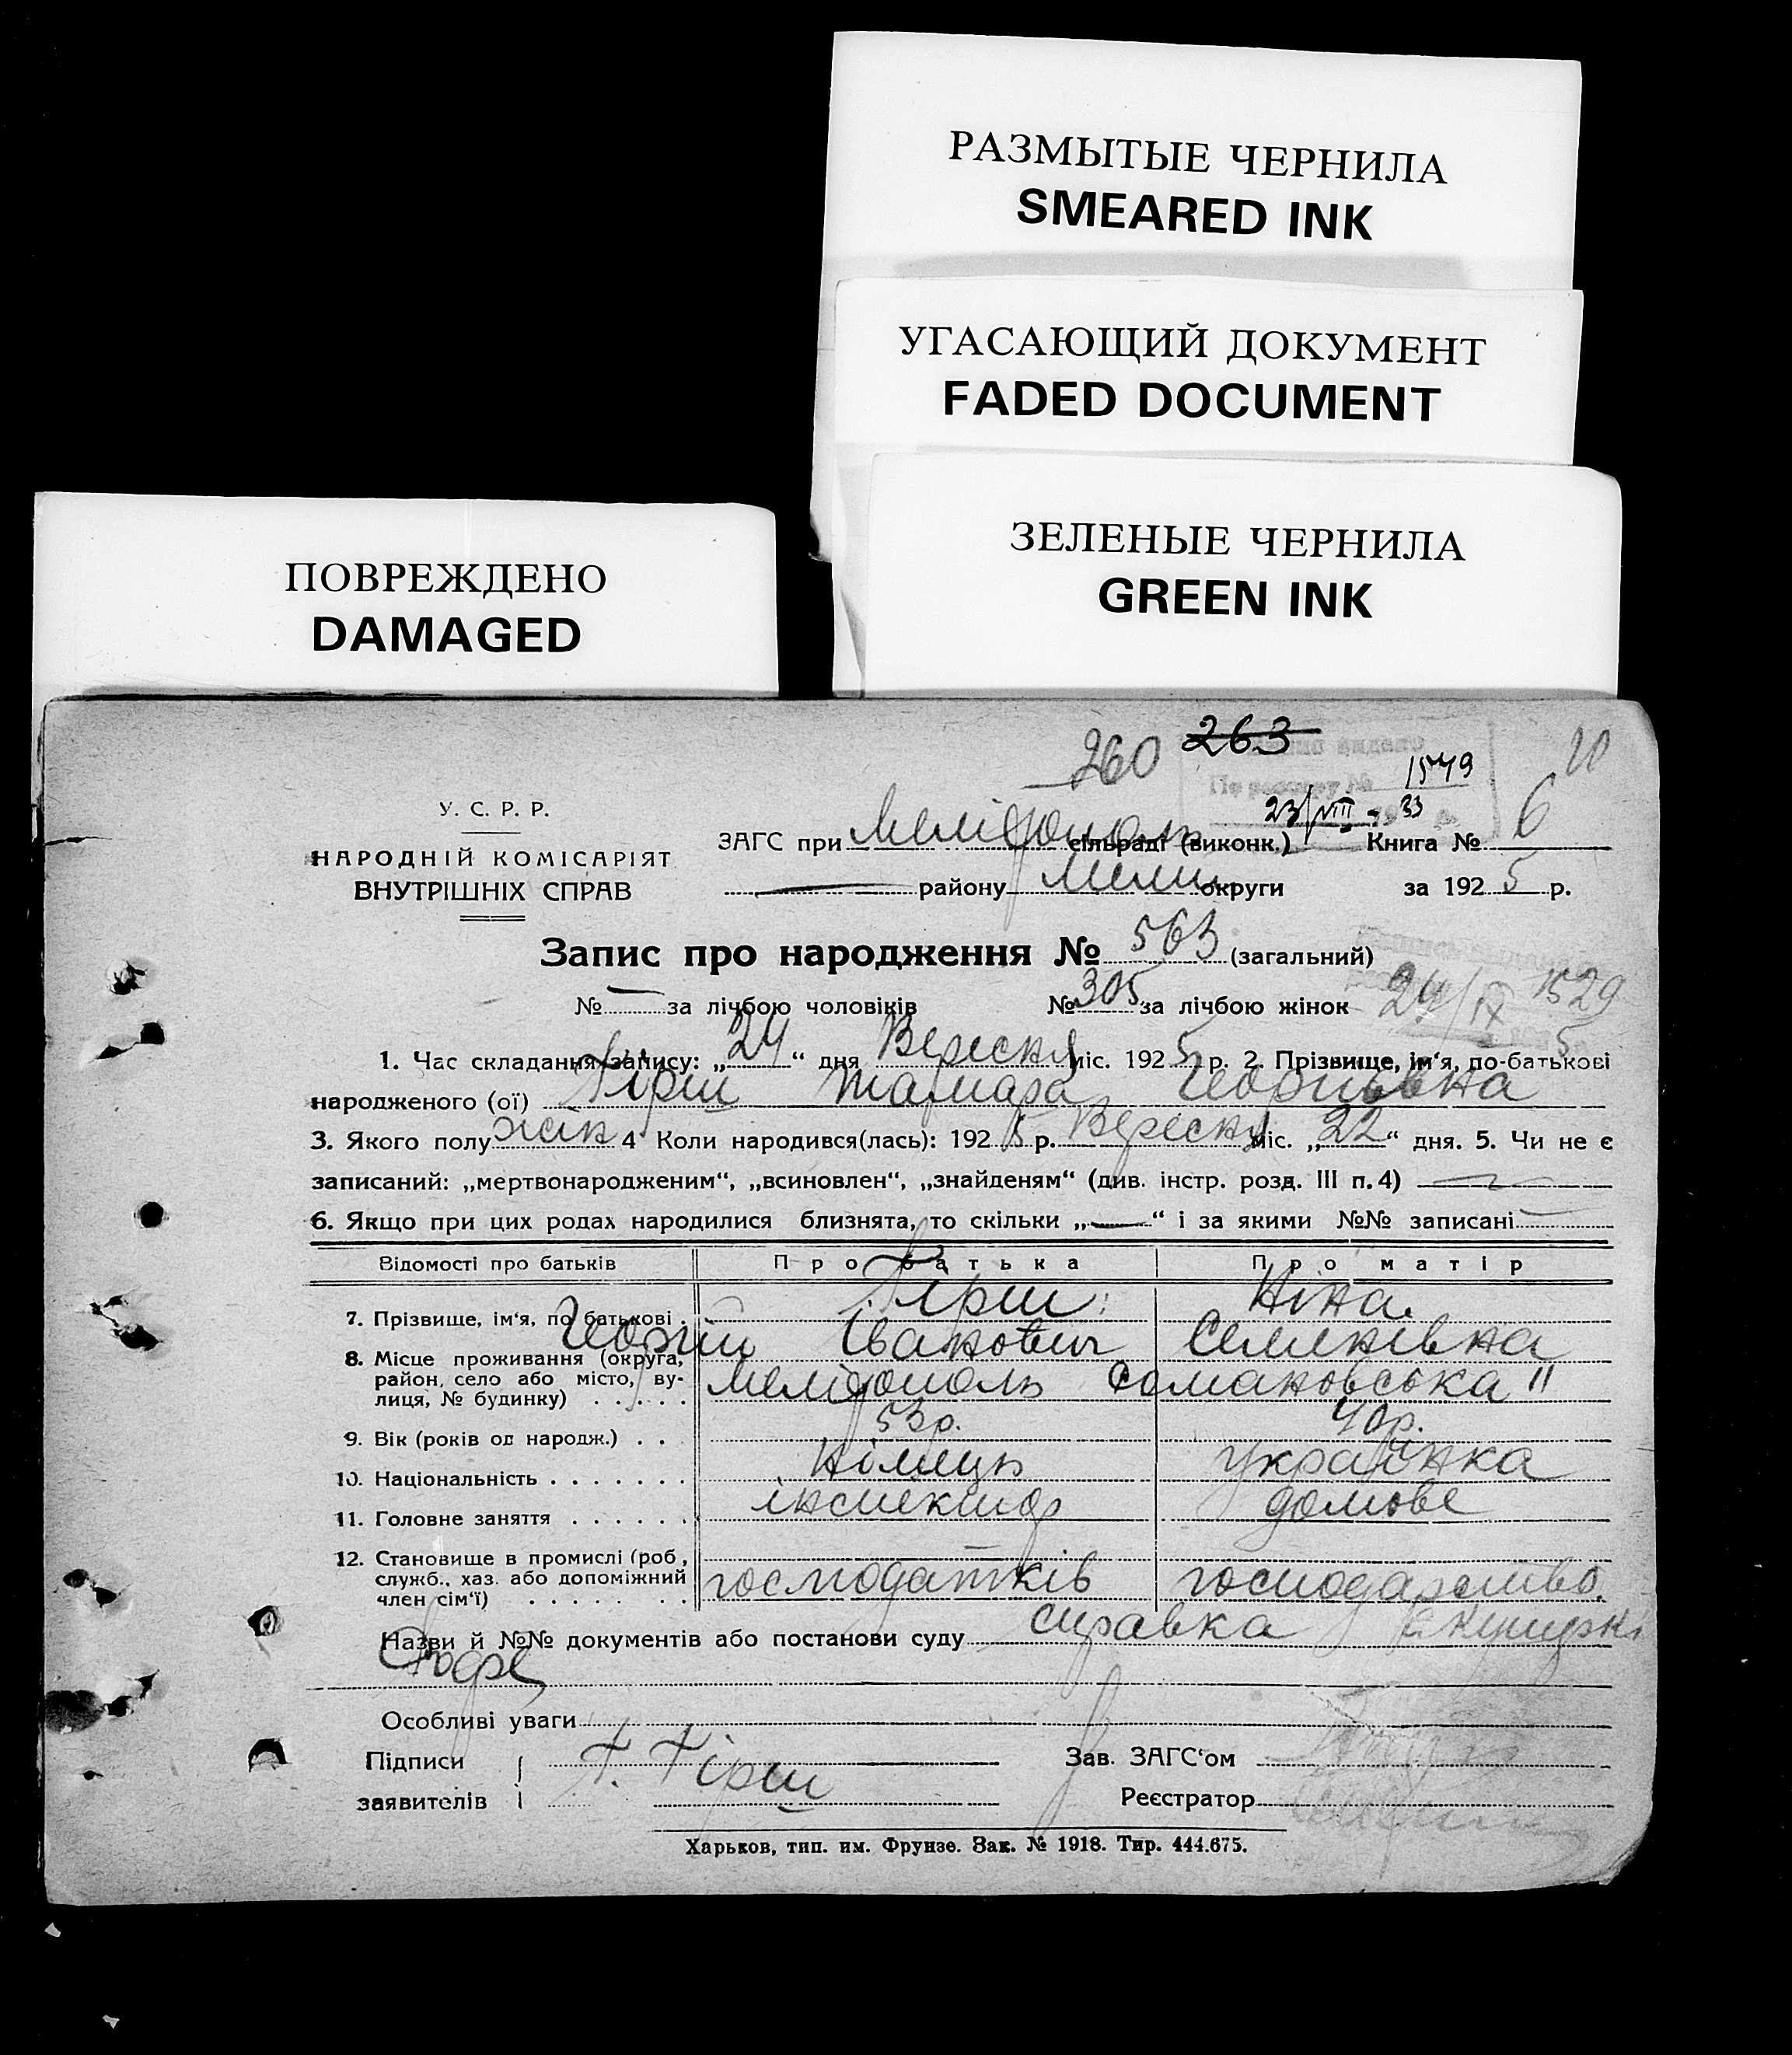 РАЗМЫТЫЕ ЧЕРНИЛА
SMEARED INK
УГАСАЮЩИЙ ДОКУМЕНТ
FADED DOCUMENT
ЗЕЛЕНЫЕ ЧЕРНИЛА
GREEN INK
ПОВРЕЖДЕНО
DAMAGED
260 263
1579
23/VIII - 33
У. С. Р. Р.
НАРОДНІЙ КОМІСАРІЯТ
ВНУТРІШНІХ СПРАВ
ЗАГС при Мелітополь сільраді (виконк.) Книга № 6
— району Мелит округи за 1925 р.
Запис про народження № 563 (загальний)
№ — за лічбою чоловіків № 305 за лічбою жінок 24/IX 1529
1. Час складання запису: „24“ дня Вересня міс. 1925 р. 2. Прізвище, ім‘я, по-батькові
народженого (ої) Гірш Тамара Георгіївна
3. Якого полу жін 4 Коли народився(лась): 1925 р. Вересня міс. „22“ дня. 5. Чи не є
записаний: „мертвонародженим“, „всиновлен“, „знайденям“ (див. інстр. розд. III п. 4) —
6. Якщо при цих родах народилися близнята, то скільки „—“ і за якими №№ записані —
Відомості про батьків Про батька Про матір
7. Прізвище, ім‘я, по батькові . Гірш Ніна
Георгій Іванович Семенівна
8. Місце проживання (округа,
район, село або місто, ву-
лиця, № будинку) . . . . . Мелітополь 11
9. Вік (років од народж.) . . . 53р. 40р.
10. Національність . . . . . . . Німець Українка
11. Головне заняття . . . . . . інспектор домове
12. Становище в промислі (роб.,
служб., хаз. або допоміжний
член сім‘ї) . . . . . . . господатків господарство.
Назви й №№ документів або постанови суду справка
Особливі уваги
Підписи
заявителів
Г. Гірш
Зав. ЗАГС‘ом
Реєстратор
Харьков, тип. им. Фрунзе. Зак. № 1918. Тир. 444.675.